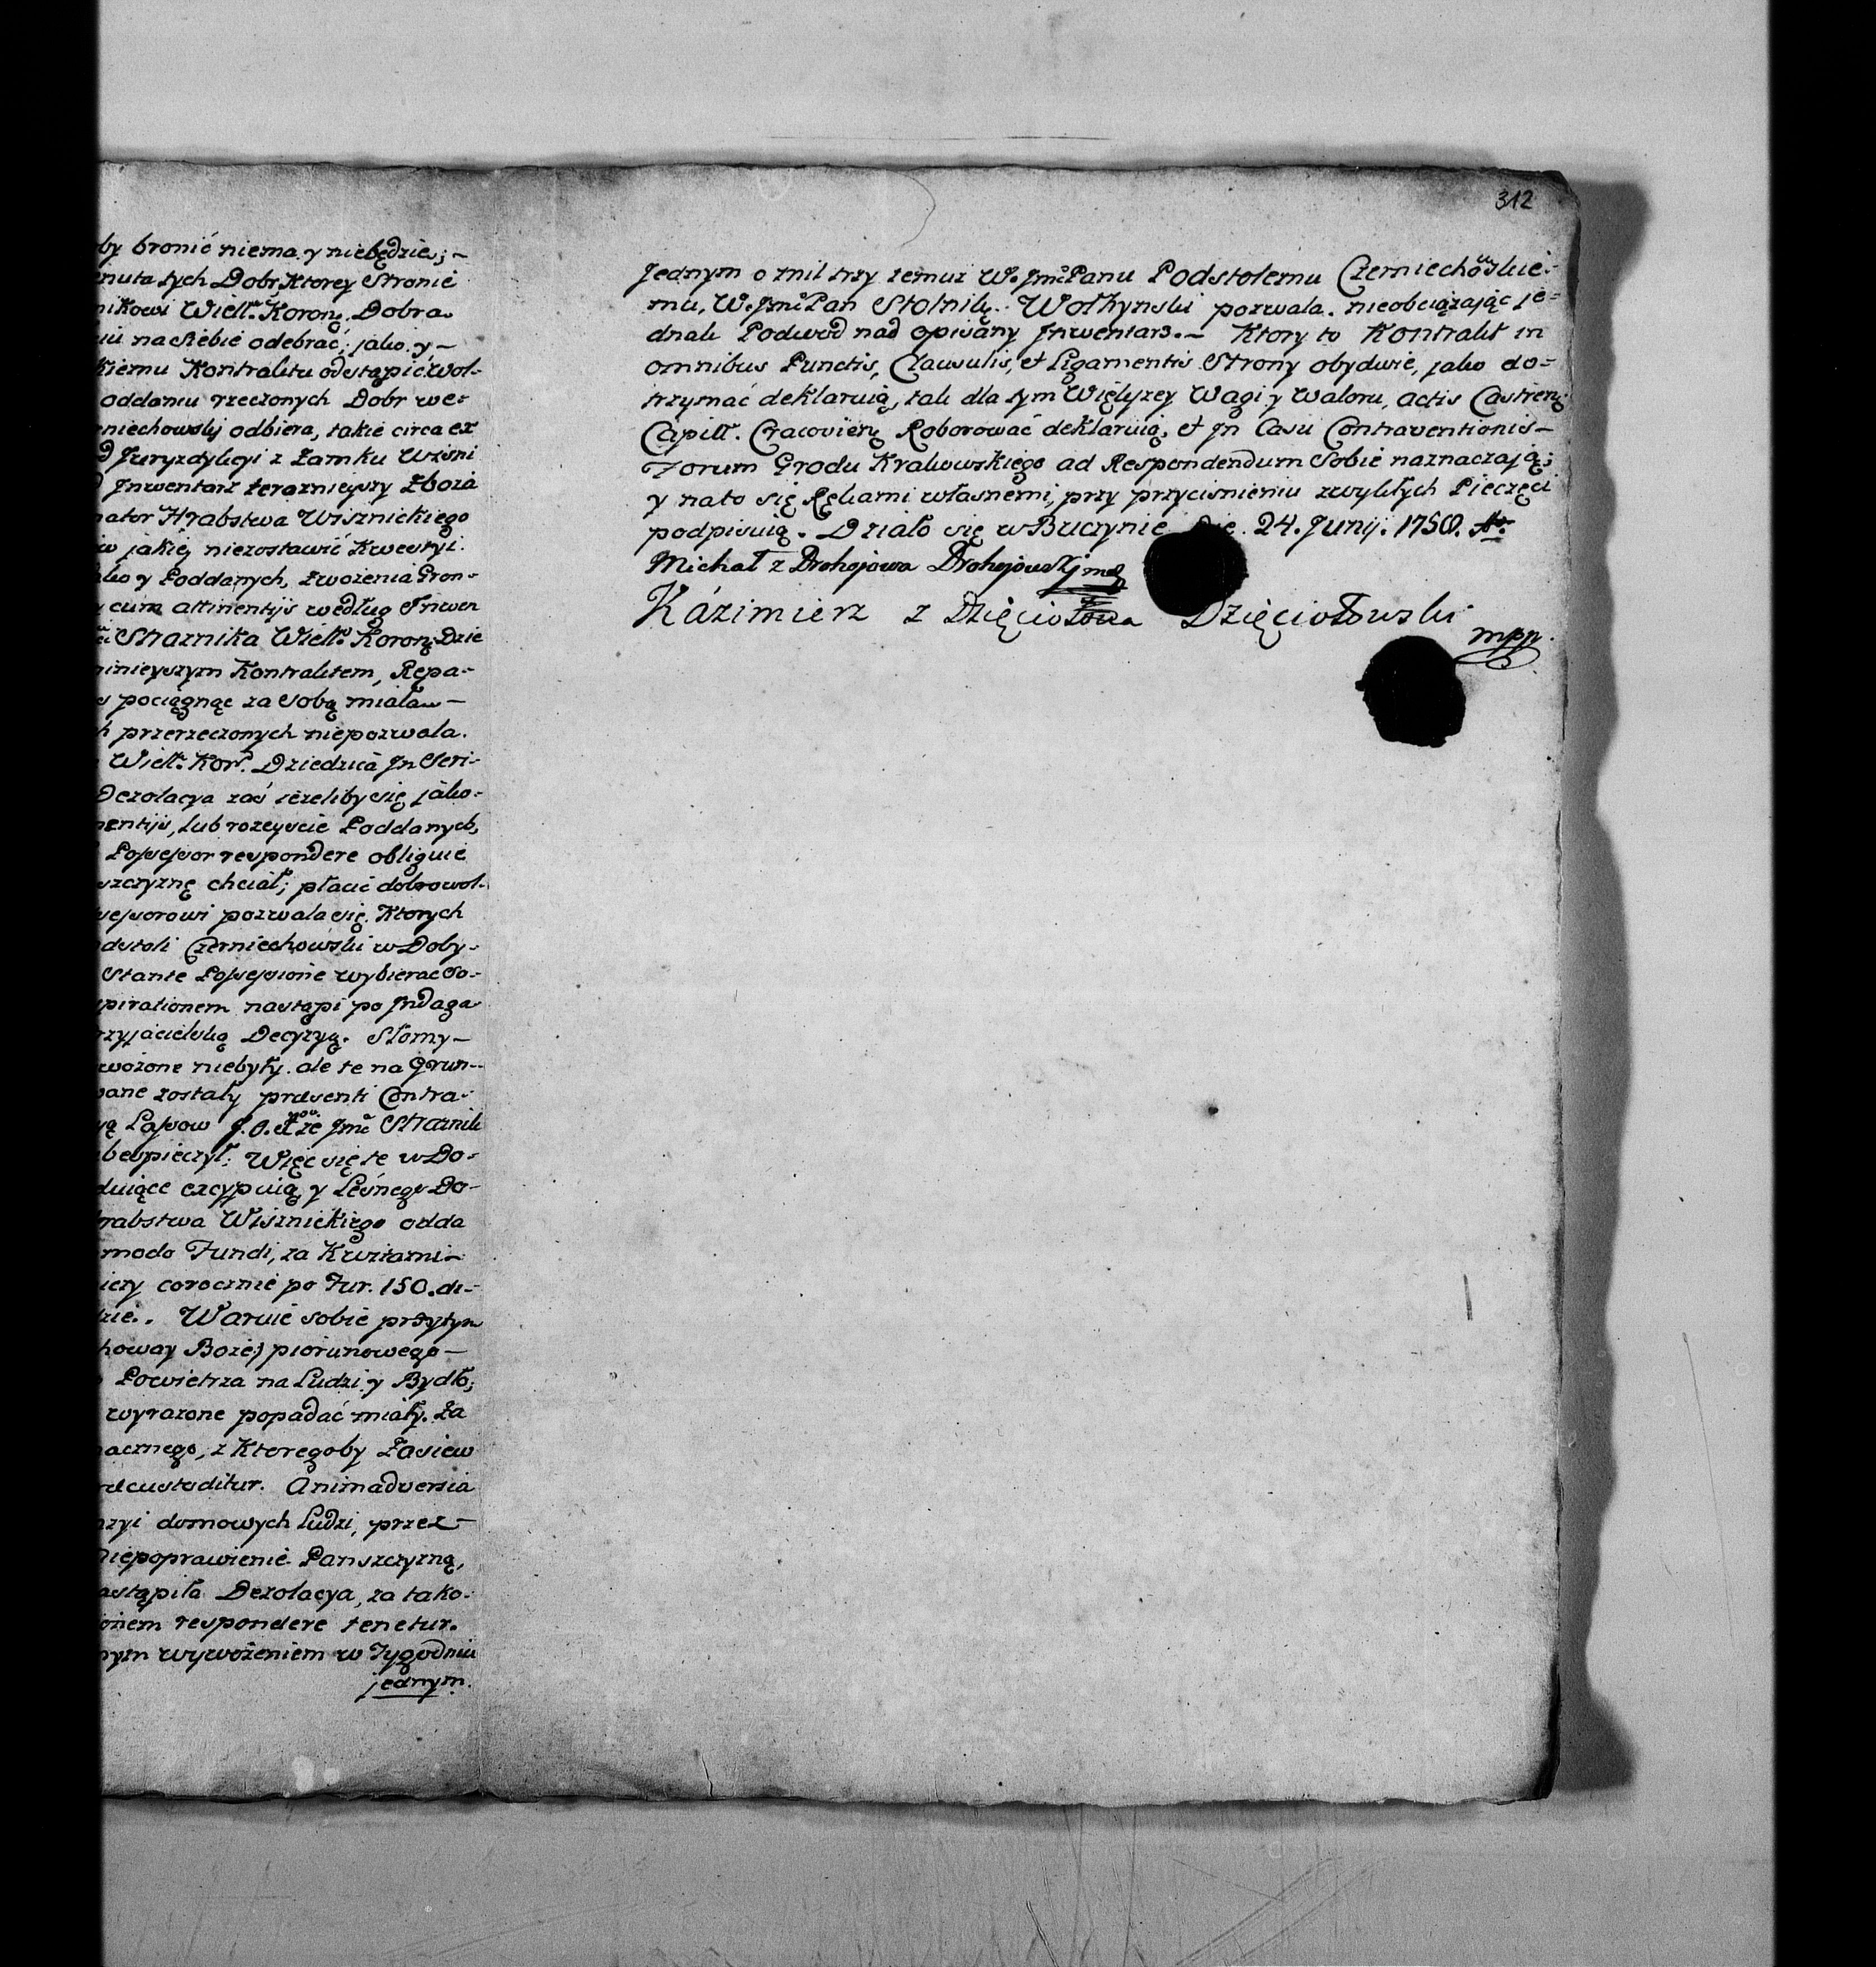 by bronić niema y niebędzie;–
enuta tych Dobr Ktorey Stronie
nikowi Wielk. Koronn. Dobra
iu na siebie odebrać; jako y–
kiemu Kontraktu odstąpić, wol-
oddaniu rzeczonych Dobr we-
niechowsky odbiera, takie circa ex
d Juryzdykcyi z Zamku Wisni
d Jnwentarz teraznieyszy Zboża
nator Hrabstwa Wisznickiego
w jakiej niezostawić Kwestyi.
ako y Poddanych, zwożenia Gron-
y cum attinentijs według Jnwen
Straznika Wielk. Koronn. Dzie
ninieyszym Kontraktem, Repa-
s pociągnąc za sobą miała–
h przerzeczonych niepozwala.
Wielk. Kor. Dziedzica Jn Seri-
Dezolacya zaś ieżeliby się jako-
nentijs, lub rozeyscie Poddanych,
Possessor respondere obliguie
szczyznę chciał; płacić dobrowol-
sessorowi pozwala się. Ktorych
odstoli Czerniechowski w Doby-
Stante Possessione wybierac So-
spirationem nastąpi po Jndaga
rzyjacielską Decyzyą. Słomy–
wożone niebyły. ale te na Grun-
wane zostały præsenti Contra-
ą Lassow J. O. Xze Jmć Straznik
bespieczył; Więc się te w Do-
duiące excypuią, y Leśnego Do-
rabstwa Wisznickiego odda
modo Fundi, za Kwitami–
iczy corocznie po Fur. 150. di-
zie.. Waruie sobie przytym
howay Boże) piorunowego–
Powietrza na Ludzi y Bydło;
wyrazone popadać miały. Za
acznego, z Ktoregoby Zasiew
ræcustoditur. Animadversia
nzyi domowych Ludzi, przez–
Niepoprawienie Panszczyzną,
astąpiła Dezolacya, za tako-
onem respondere tenetur.
nym wywożeniem w Tygodniu
jednym.
312
Jednym o mil trzy temuz W. Jmć Panu Podstolemu Czerniechowskie-
mu, W. Jmć Pan Stolnik Wołhynski pozwala. nieobciążając je-
dnak Podwod nad opisany Jnwentarz.– Ktory to Kontrakt in
omnibus Punctis, Clausulis, et Ligamentis Strony obydwie, jako do-
trzymać deklaruią, tak dla tym Większey Wagi y Waloru, Actis Castren.
Capitt. Cracovien. Roborować deklaruią, et Jn Casu Contraventionis–
Forum Grodu Krakowskiego ad Respondendum Sobie naznaczają;
y na to się Rękami własnemi, przy przycisnieniu zwykłych Pieczęci
podpisuią. Działo się w Buczynie Die. 24. Junij. 1750. Ao.
Michał z Drohojowa Drohojowskj mp
Kázimierz z Dzięciołowa Dzięciołowski
mpp.